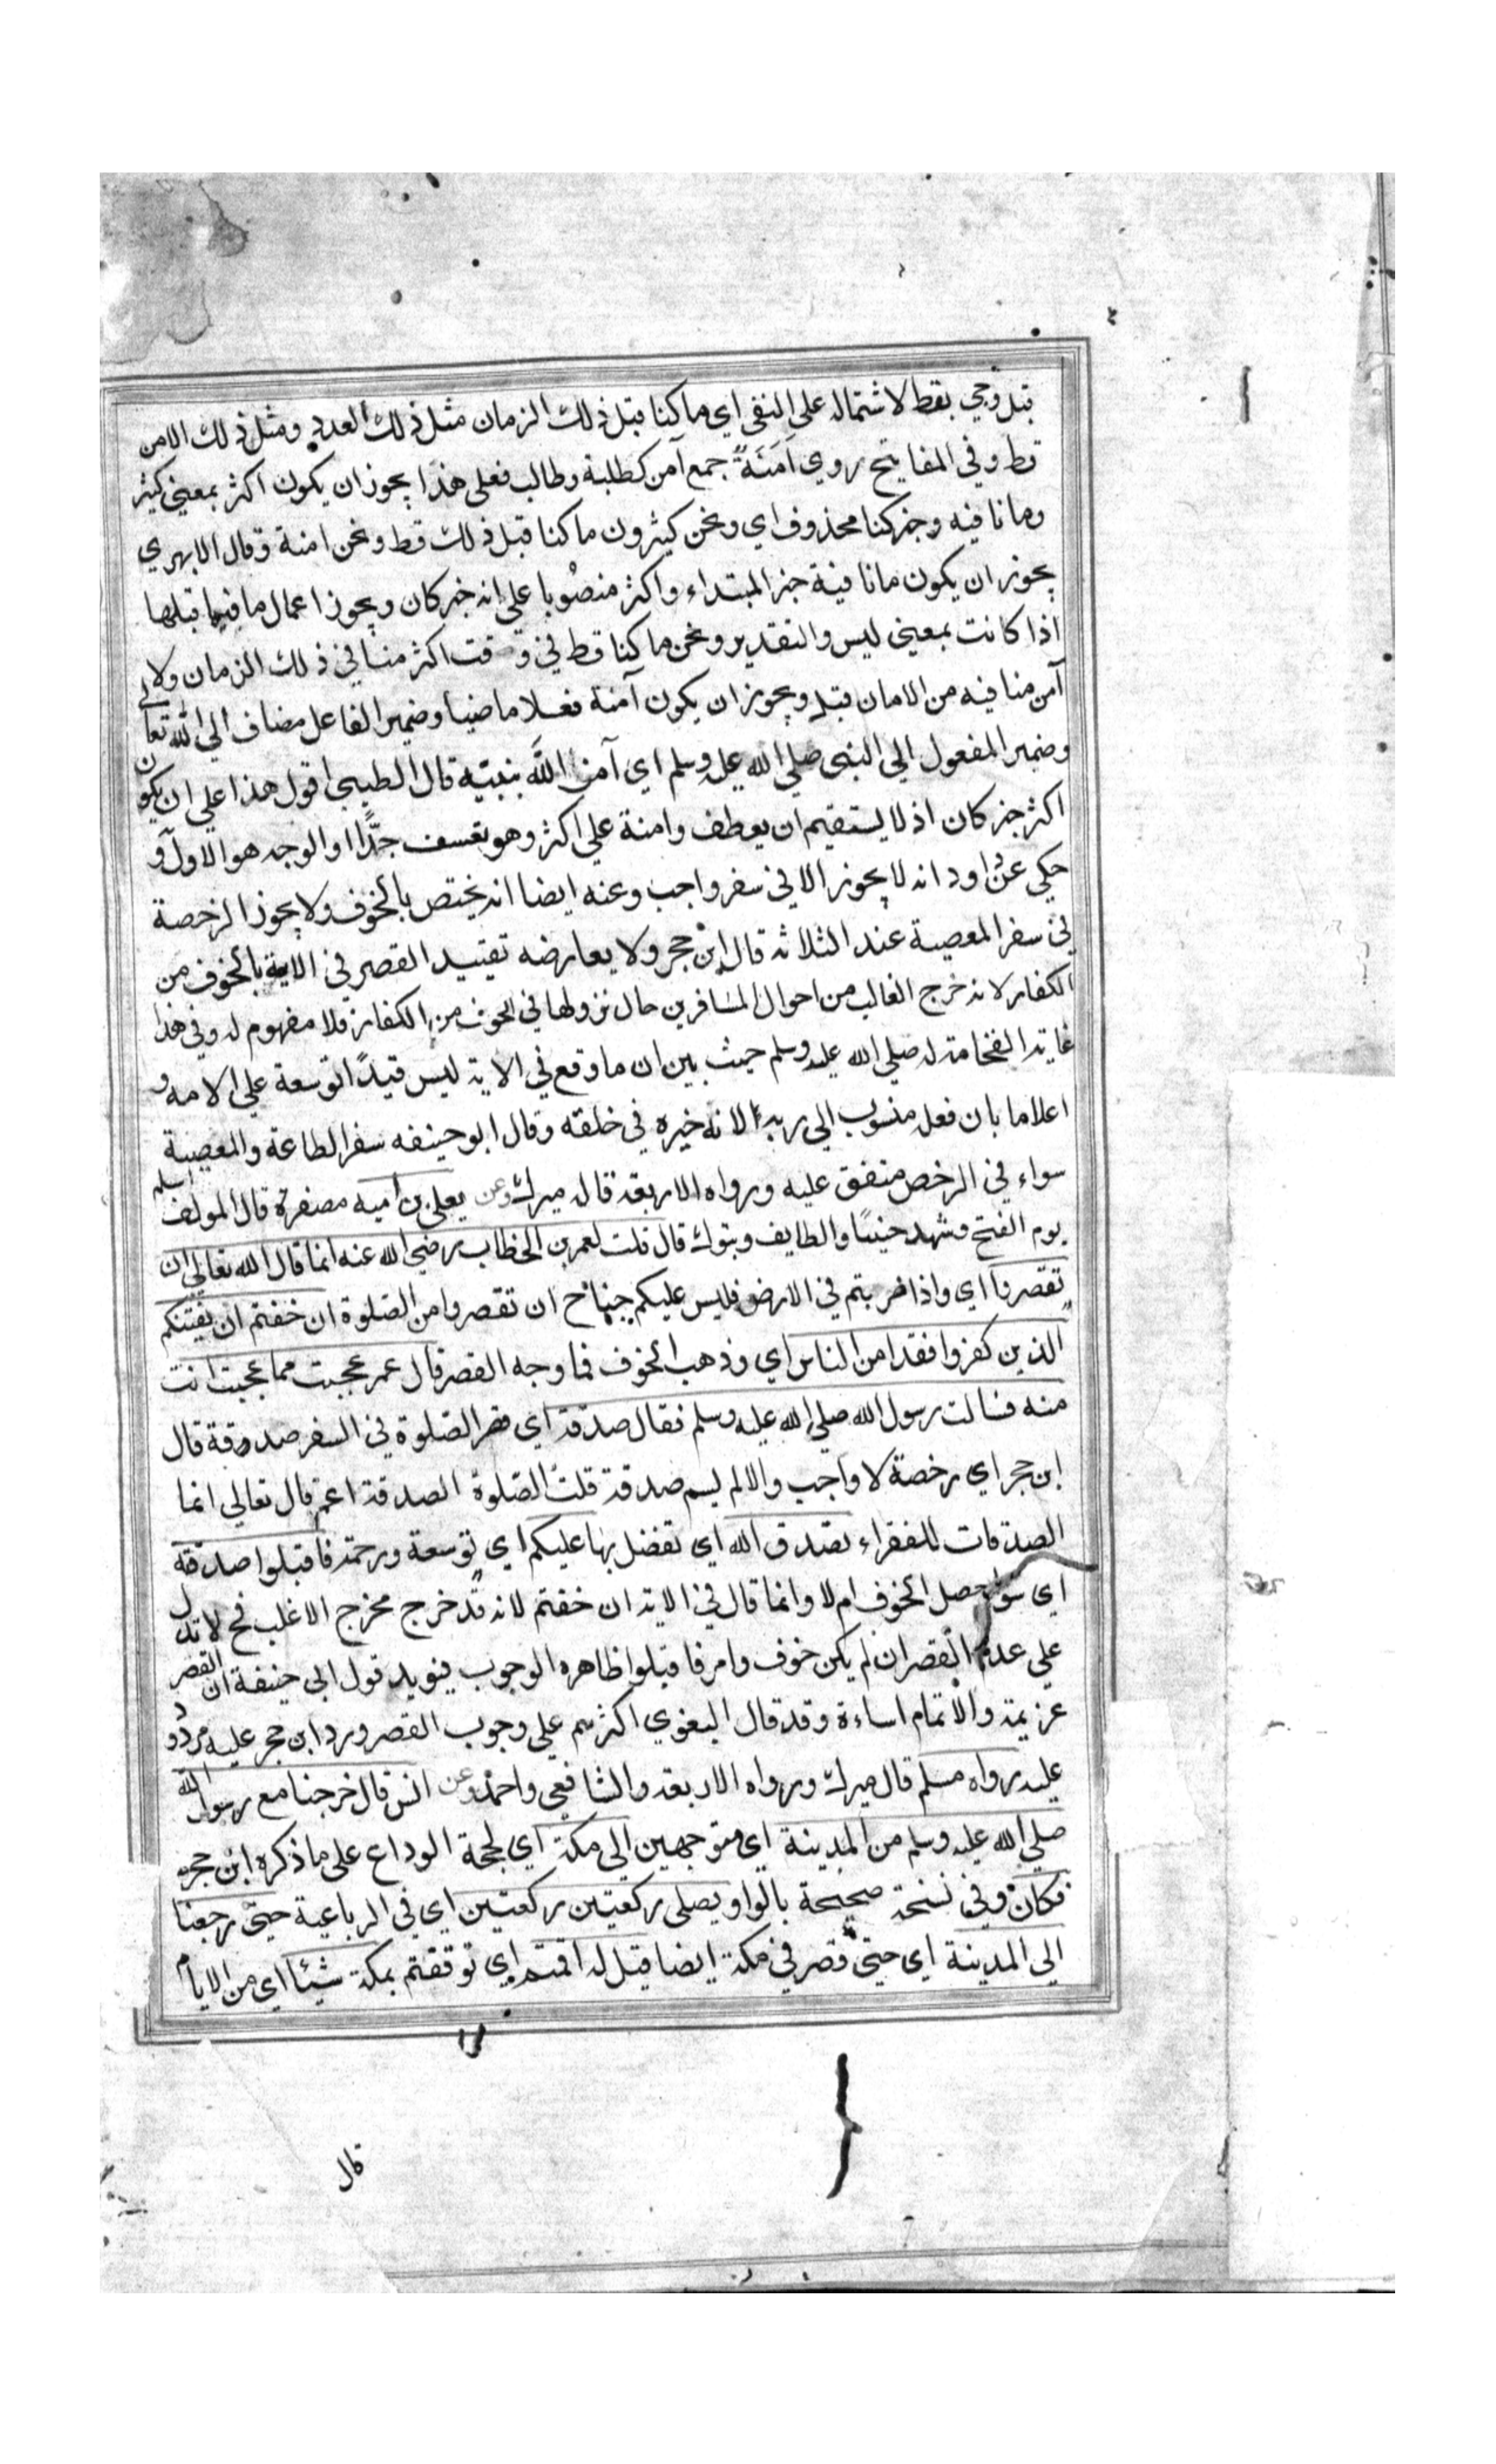 قبل وجي بقط لاشتماله على النفى اي ما كنا قبل ذلك الزمان مثل ذلك العدد ومثل ذلك الامن
قط وفي المفاتيح روي اَمَنَةً جمع آمن كطلبة وطالب فعلى هذا يجوز ان يكون اكثر بمعنى كثير
وما نافيه وخبر كنا محذوف اي ونحن كثيرون ما كنا قبل ذلك قط ونحن امنة وقال الابهري
يجوز ان يكون ما نافية خبر المبتداء واكثر منصُوبا على انه خبر كان ويجوز اعمال ما فيما قبلها
اذا كانت بمعنى ليس والتقدير ونحن ما كنا قط في وقت اكثر منا في ذلك الزمان ولا
آمن منا فيه من الامان قبله ويجوز ان يكون آمنة فعلا ماضيا وضمير الفاعل مضاف الي الله تعالى
وضمير المفعول الي النبى صلي الله عليه وسلم اي آمن الله بنبيه قال الطيبى اقول هذا علي ان يكون
اكثر خبر كان اذ لا يستقيم ان يعطف وامنة علي اكثر وهو تعسف جدًّا او الوجه هو الاول و
حكي عن داود انه لا يجوز الا في سفر واجب وعنه ايضا انه يختص بالخوف ولا يجوز الرخصة
في سفر المعصية عند الثلاثه قال ابن حجر ولا يعارضه تقييد القصر في الاية بالخوف من
الكفار لانه خرج الغالب من احوال المسافرين حال نزولها في الخوف من الكفار فلا مفهوم له وفي هذا
غاية الفخامة له صلي الله عليه وسلم حيث بين ان ما وقع في الاية ليس قيدًا توسعة علي الامه و
اعلاما بان فعله منسوب الي ربه الانه خيره في خلقه وقال ابو حنيفه سفر الطاعة والمعصية
سواء في الرخص متفق عليه ورواه الاربعة قاله ميرك وعن يعلى بن اميه مصغرة قال المولف اسلم
يوم الفتح وشهد حنينًا والطايف وتبوك قال قلت لعمر بن الخطاب رضي الله عنه انما قال الله تعالي ان
تقصروا اي واذا ضربتم في الارض فليس عليكم جناح ان تقصروا من الصلوة ان خفتم ان يفتنكم
الذين كفروا فقد امن الناس اي وذهب الخوف فما وجه القصر قال عمر عجبت مما عجبت انت
منه فسالت رسول الله صلي الله عليه وسلم فقال صدقة اي قصر الصلوة في السفر صدقة قال
ابن حجر اي رخصة لا واجب والا لم يسم صدقة قلت الصلوة الصدقة اعم قال تعالي انما
الصدقات للفقراء تصدق الله اي تفضل بها عليكم اي توسعة ورحمة فاقبلوا صدقته
اي سوا حصل الخوف ام لا وانما قال في الاية ان خفتم لانه قد خرج مخرج الاغلب فح لا تدل
علي عدم القصر ان لم يكن خوف وامر فاقبلوا ظاهره الوجوب فيويد قول ابي حنيفة ان القصر
عزيمة والاتمام اساءة وقد قال البغوي اكثرهم علي وجوب القصر ورد ابن حجر عليه مردود
عليه رواه مسلم قال ميرك ورواه الاربعة والشافعي واحمد وعن انس قال خرجنا مع رسول الله
صلي الله عليه وسلم من المدينة اي متوجهين الي مكة اي لحجة الوداع على ما ذكره ابن حجر
فكان وفي نسخة صحيحة بالواو يصلى ركعتين ركعتين اي في الرباعية حتى رجعنا
الي المدينة اي حتى قصر في مكة ايضا قيل له اقمتم اي توقفتم بمكة شيئا اي من الايام
قال